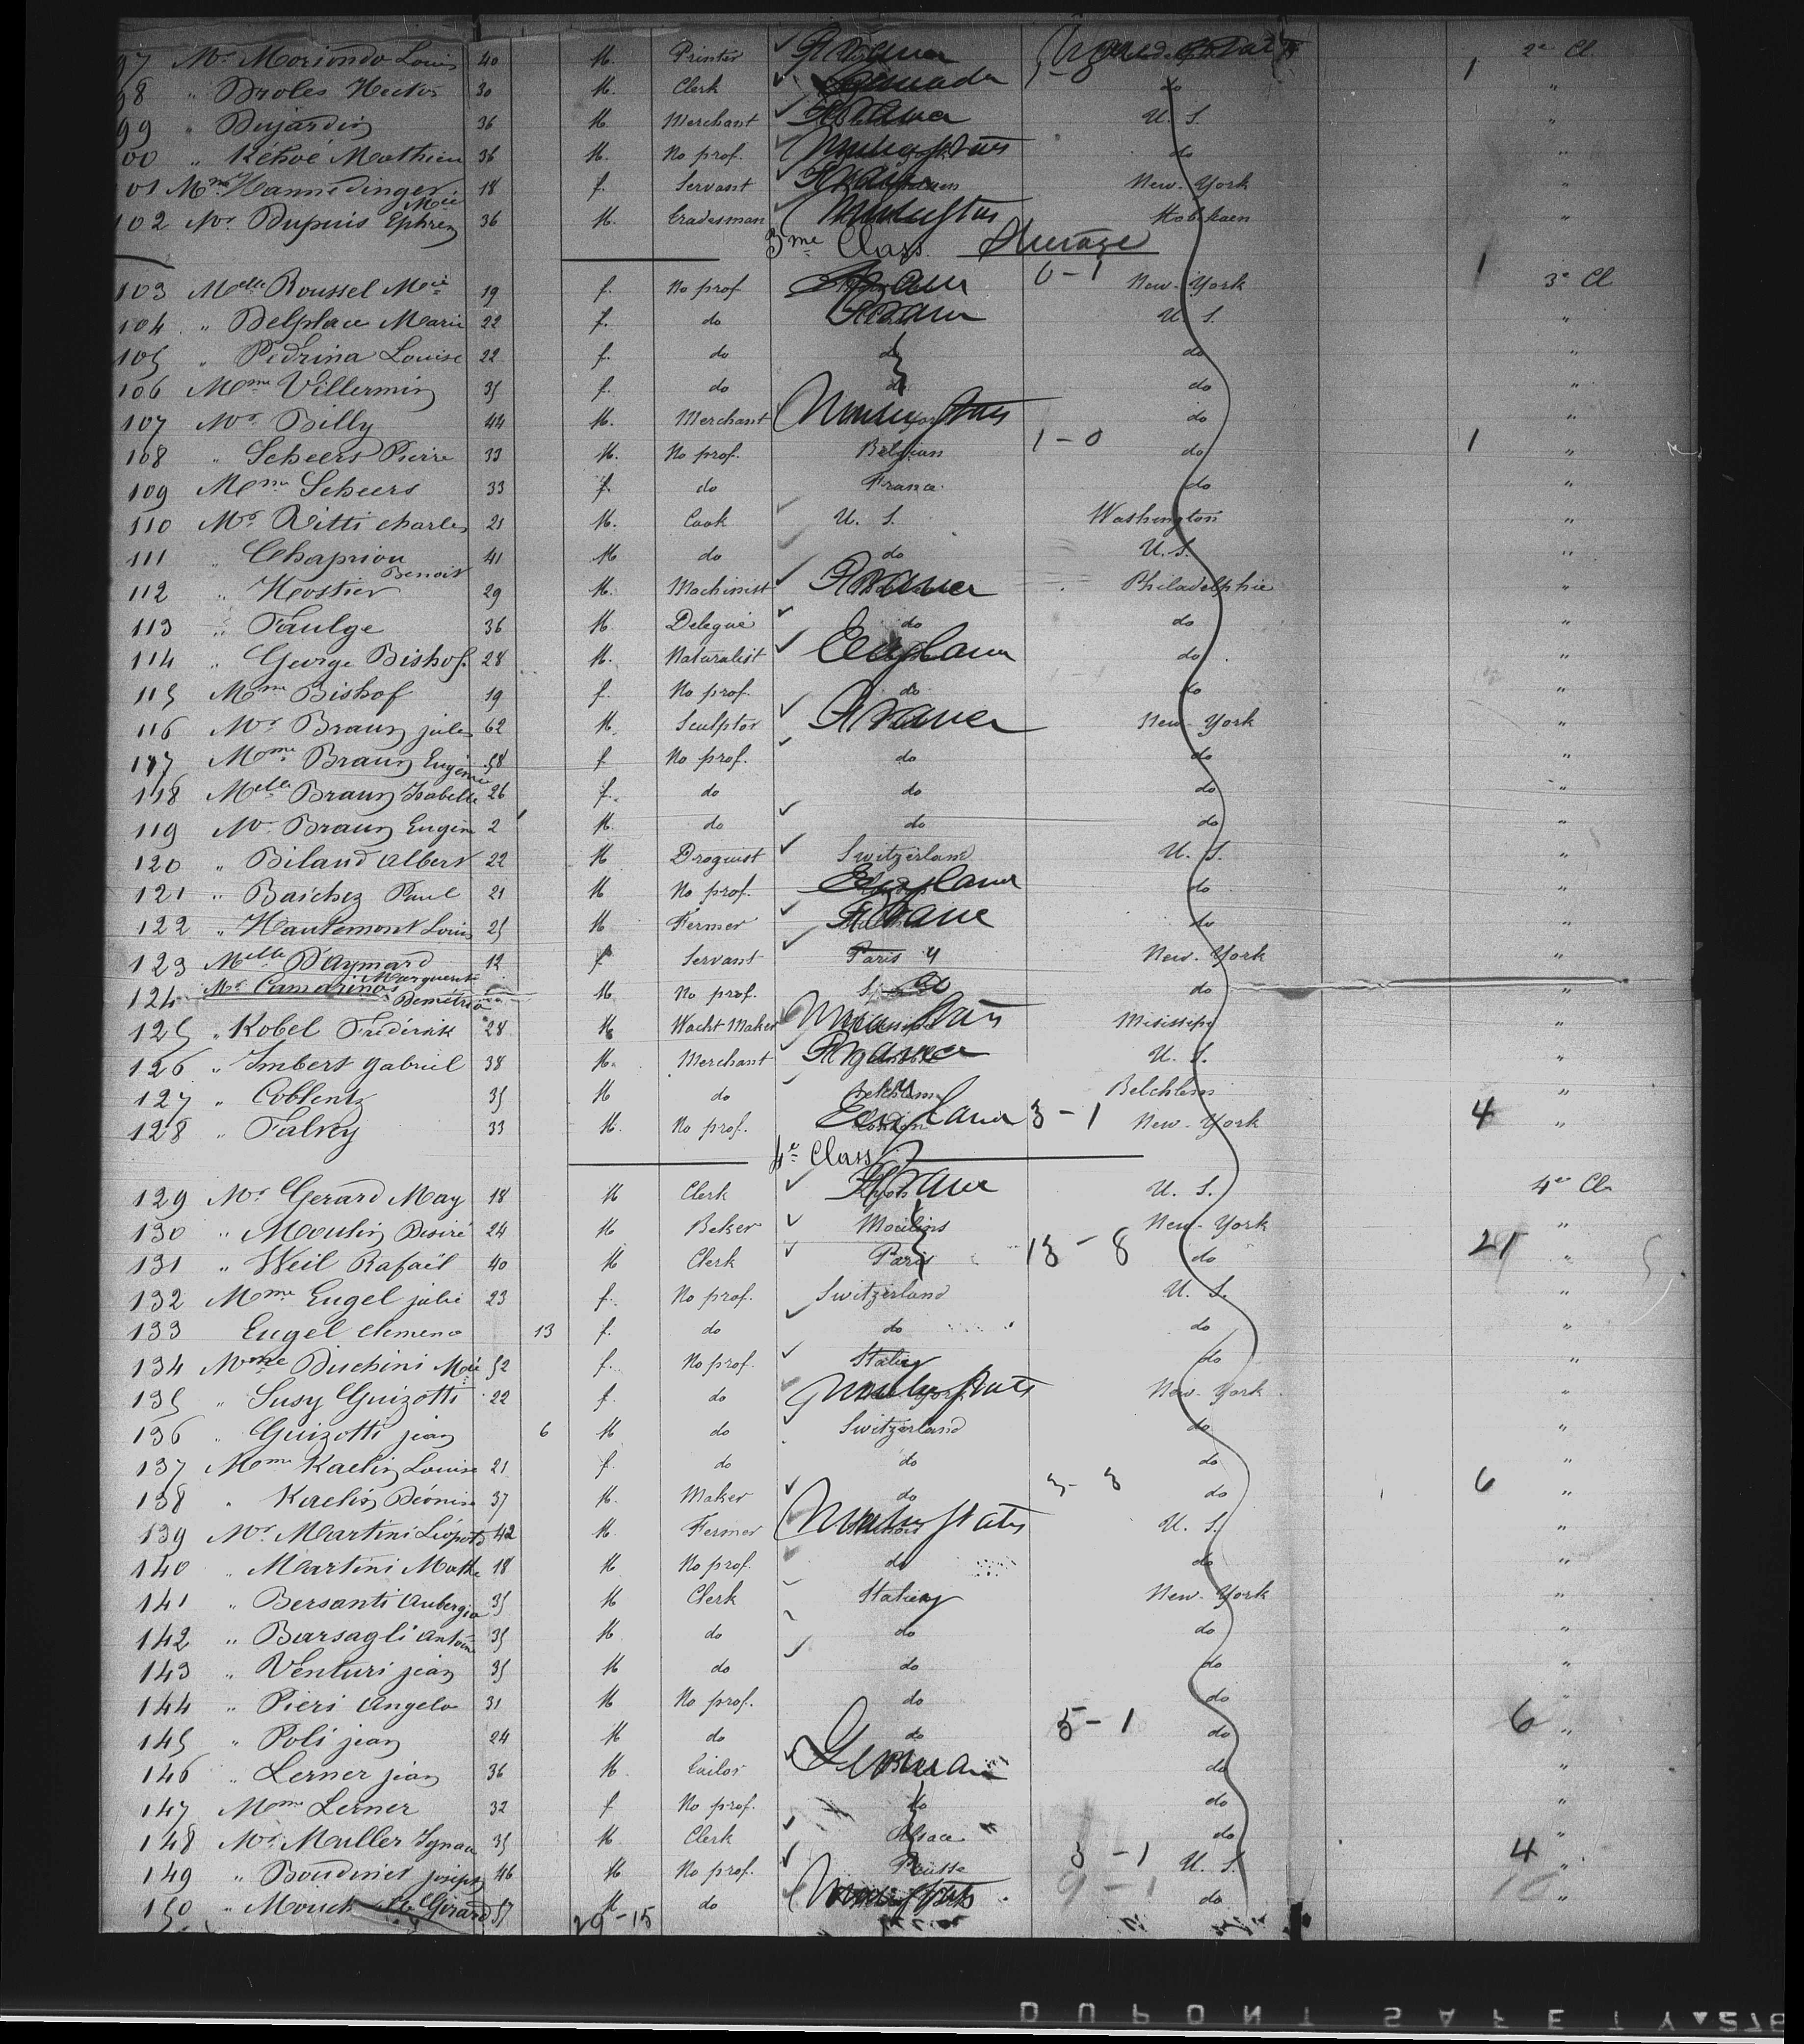 97 Mr. Moriondo Louis 40 M. Printer 1 2e Cl.
98 " Droles Hector 30 M. Clerk do "
99 " Dujardin 36 M. Merchant U. S. "
00 " Kéhoé Mathieu 36 M. No prof. do "
01 Mme Hannedinger Mie 18 f. Servant New-York "
102 Mr. Dupuis Ephrem 36 M. Tradesman Hobkaen "
3me Class Steerage
103 Melle Roussel Mie 19 f. No prof 0-1 New-York 1 3e Cl
104 " Delplace Marie 22 f. do U. S. "
105 " Pedrina Louise 22 f. do do do "
106 Mme Villermin 35 f. do do do "
107 Mr. Billy 44 M. Merchant do "
108 " Scheers Pierre 33 M. No prof. Belgian 1-0 do 1 "
109 Mme Scheers 33 f. do France do "
110 Mr Ritti Charles 21 M. Cook U. S. Washington "
111 " Chaprion Benoit 41 M do do U. S. "
112 " Hostier 29 M. Machinist France Philadelphie "
113 " Faulge 36 M. Delegué do do "
114 " George Bishof 28 M. Naturalist England do "
115 Mme Bishof 19 f. No prof. do do "
116 Mr Braun jules 62 M. Sculptor France New-York "
117 Mme Braun Eugénie 58 f No prof. do do "
118 Melle Braun Isabelle 26 f. do do do "
119 Mr. Braun Eugèn 2 M. do do do "
120 " Biland Albert 22 M Droguist Switzerland U. S. "
121 " Baichez Paul 21 M No prof. England do "
122 " Hautemont Louis 25 M Fermer France do "
123 Melle D'Aymard Marguerite 12 f Servant Paris New-York "
124 Mr Camarinos Demétrios M. No prof. do "
125 " Kobel Frédérik 28 M Wacht Maker Misissipi "
126 " Imbert Gabriel 38 M. Merchant France U. S. "
127 " Coblentz 35 M do Belchlem "
128 " Falvey 33 M. No prof. England 3-1 New-York 4 "
4e Class
129 Mr Gerard May 18 M Clerk France U. S. 4e Cl.
130 " Moulin Desiré 24 M Beker Moulins New-York "
131 " Weil Rafaël 40 M Clerk Paris 13-8 do 21 "
132 Mme Engel julie 23 f. No prof. Switzerland U. S. "
133 Engel Clemena 13 f. do do do "
134 Mme Dischini Mie 52 f. No prof. Italy do "
135 " Susy Guizotti 22 f. do New-York "
136 " Guizotti jean 6 M do Switzerland do "
137 Mme Kaelin Louise 21 f. do do do "
138 " Kaelin Déonise 37 M. Maker do 3-3 do 6 "
139 Mr. Martini Léopold 42 M Fermer United States U. S. "
140 " Martini Mathe 18 M No prof. do do "
141 " Bersanti Aubergio 35 M Clerk Italien New-York "
142 " Barsagli Antoine 35 M. do do do "
143 " Venturi jean 35 M do do do "
144 " Pieri Angelo 31 M No prof. do do "
145 " Poli jean 24 M do do 5-1 do 6 "
146 " Lerner jean 36 M. Tailor German do "
147 Mme Lerner 32 f No prof. do do "
148 Mr. Muller Ignace 35 M. Clerk Alsace do "
149 " Boudinet joseph 46 M. No prof. Prusse 3-1 U. S. 4 "
150 " Mouch 57 M do 9-1 do 10 "
29-15
DUPONT SAFETY 276